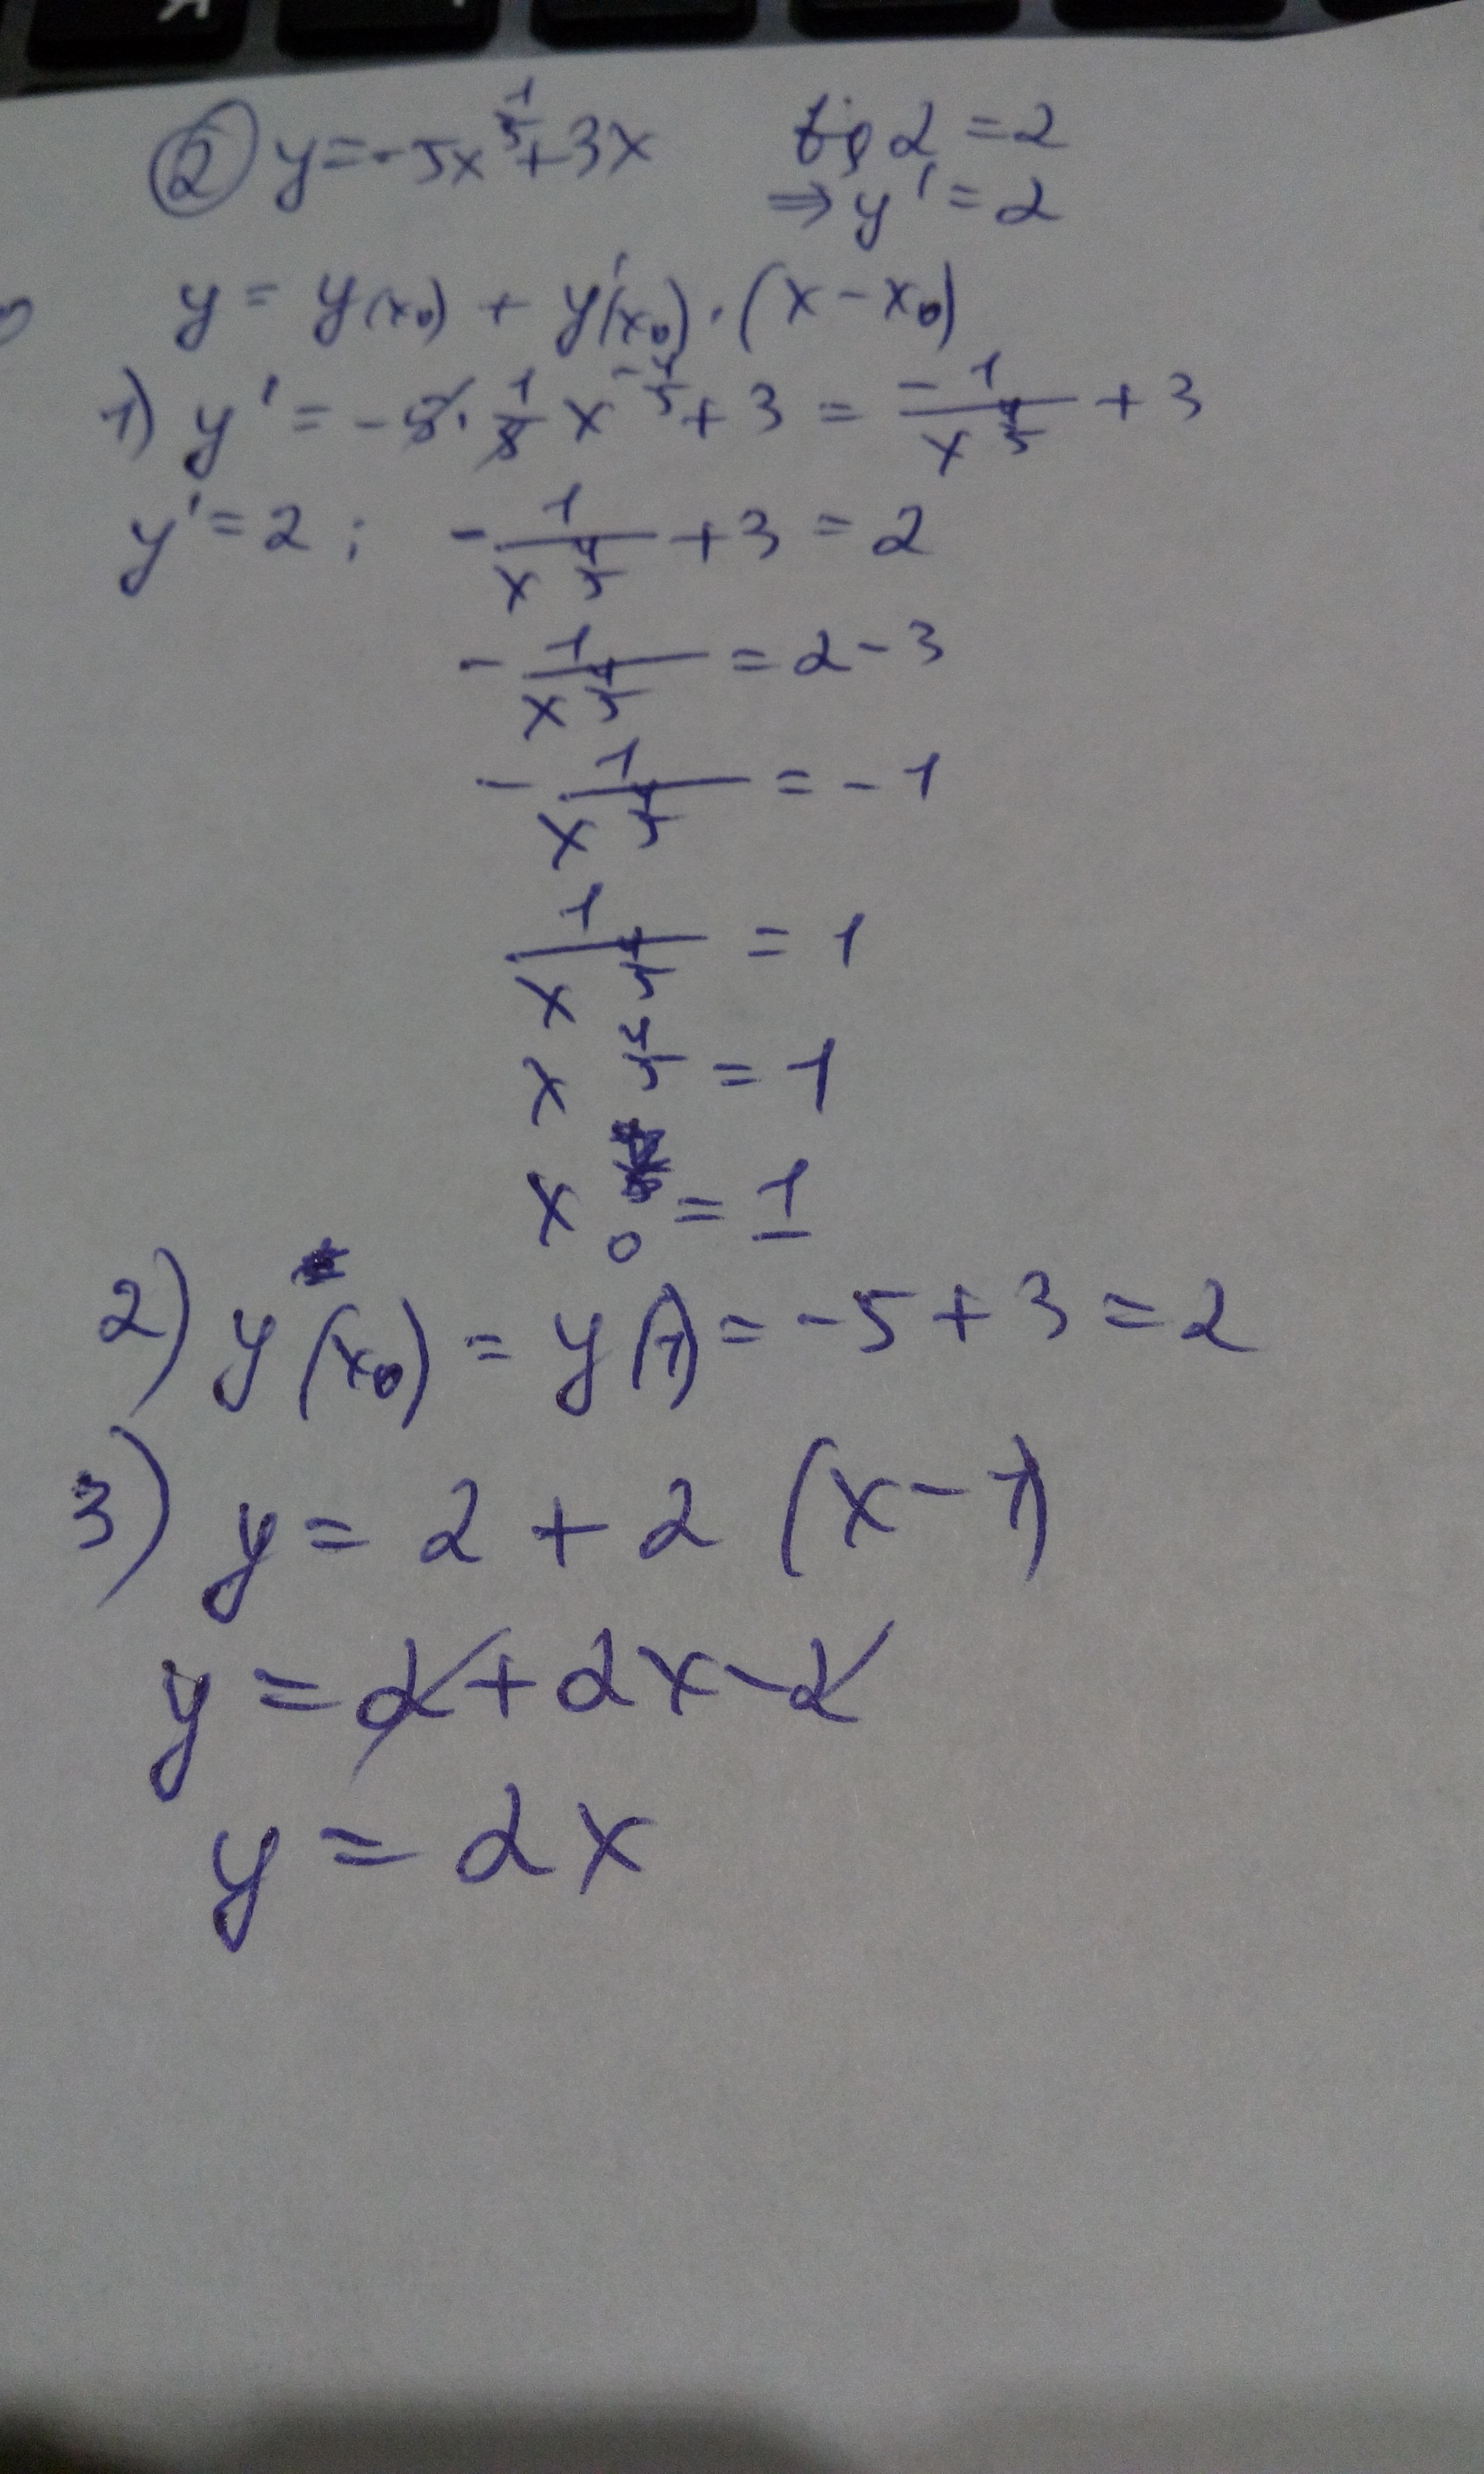 ② y=-5x^{1/5}+3x tg α=2
⇒y'=2
y = y(x₀) + y'(x₀)·(x-x₀)
1) y' = -5·1/5 x^{-4/5}+3 = -1/x^{4/5} +3
y'=2; -1/x^{4/5} +3=2
-1/x^{4/5} =2-3
-1/x^{4/5} =-1
1/x^{4/5} =1
x^{4/5} =1
x₀=1
2) y(x₀) = y(1) = -5+3=2
3) y= 2+2 (x-1)
y=2+2x-2
y=2x